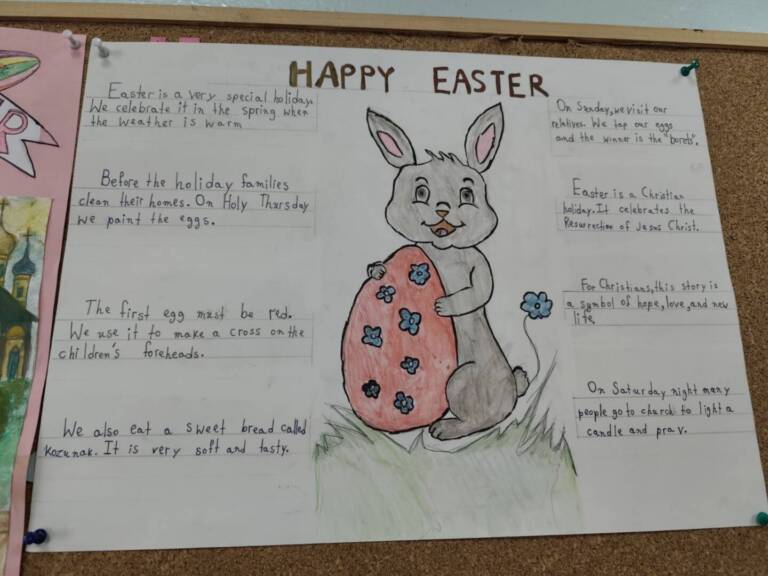 HAPPY EASTER
Easter is a very special holiday.
We celebrate it in the spring when
the weather is warm
Before the holiday families
clean their homes. On Holy Thursday
we paint the eggs.
The first egg must be red.
We use it to make a cross on the
children's foreheads.
We also eat a sweet bread called
kozunak. It is very soft and tasty.
On Sunday, we visit our
relatives. We tap our eggs
and the winner is the "borets".
Easter is a Christian
holiday. It celebrates the
Resurrection of Jesus Christ.
For Christians, this story is
a symbol of hope, love, and new
life.
On Saturday night many
people go to church to light a
candle and pray.